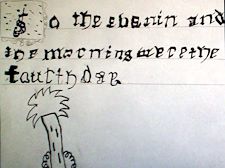 So the evenin and
the morning were the
fourth day.